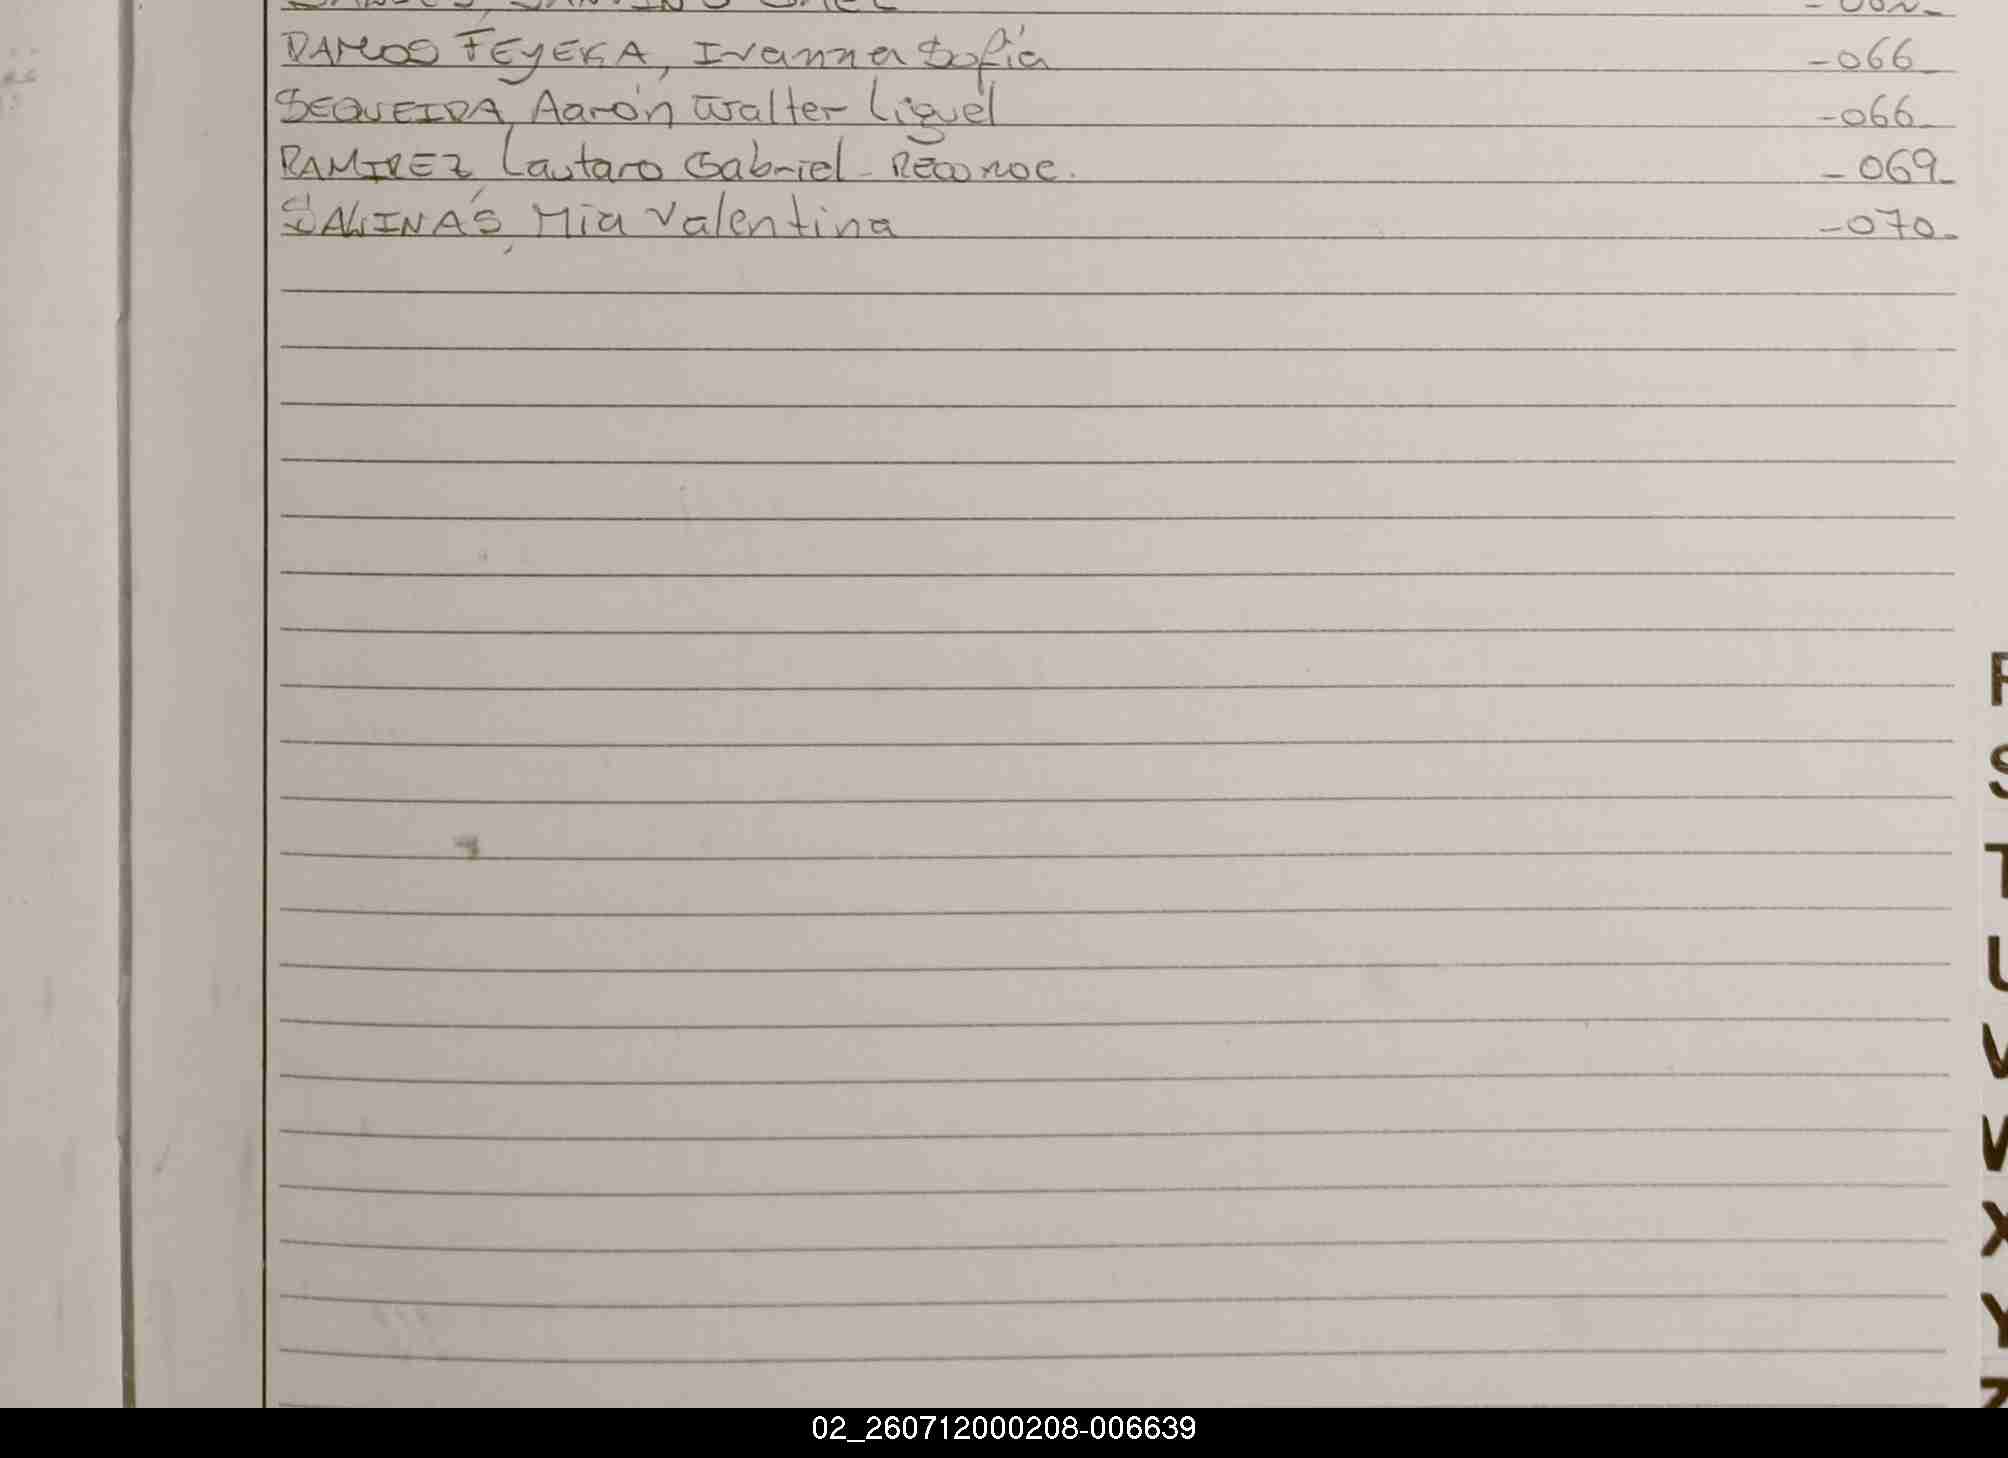 RAMOS FEYEKA, Ivanna Sofía -066-
SEQUEIRA, Aarón Walter Liguel -066-
RAMIREZ, Lautaro Gabriel - RECONOC. -069-
SALINAS, Mia Valentina -070-
S
T
U
V
W
X
Y
Z
02_260712000208-006639